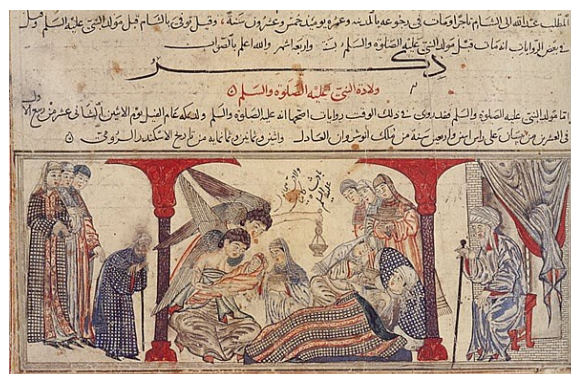 المطلب عبد الله الى الشام تاجرا ومات فى رجوعه بالمدينه وعمره يوميذ خمس وعشرون سنة وقيل توفى بالشام قبل مولد النبى عليه السلم وقيل
فى بعض الروايات انه مات قبل مولد النبى عليه الصلوة والسلم واربعة اشهر والله اعلم بالصواب
ذكر
ولادة النبى عليه الصلوة والسلم
اما مولد النبى عليه الصلوة والسلم فقد روى فى ذلك الوقت روايات اصحها انه عليه الصلوة والسلم ولد بمكة عام الفيل يوم الاثنين الثانى عشر من ربيع الاول
فى العشرين من نيسان على راس اثنين واربعين سنة من ملك انوشروان العادل واثنتين وثمانين وثمانمايه من تاريخ الاسكندر الرومى